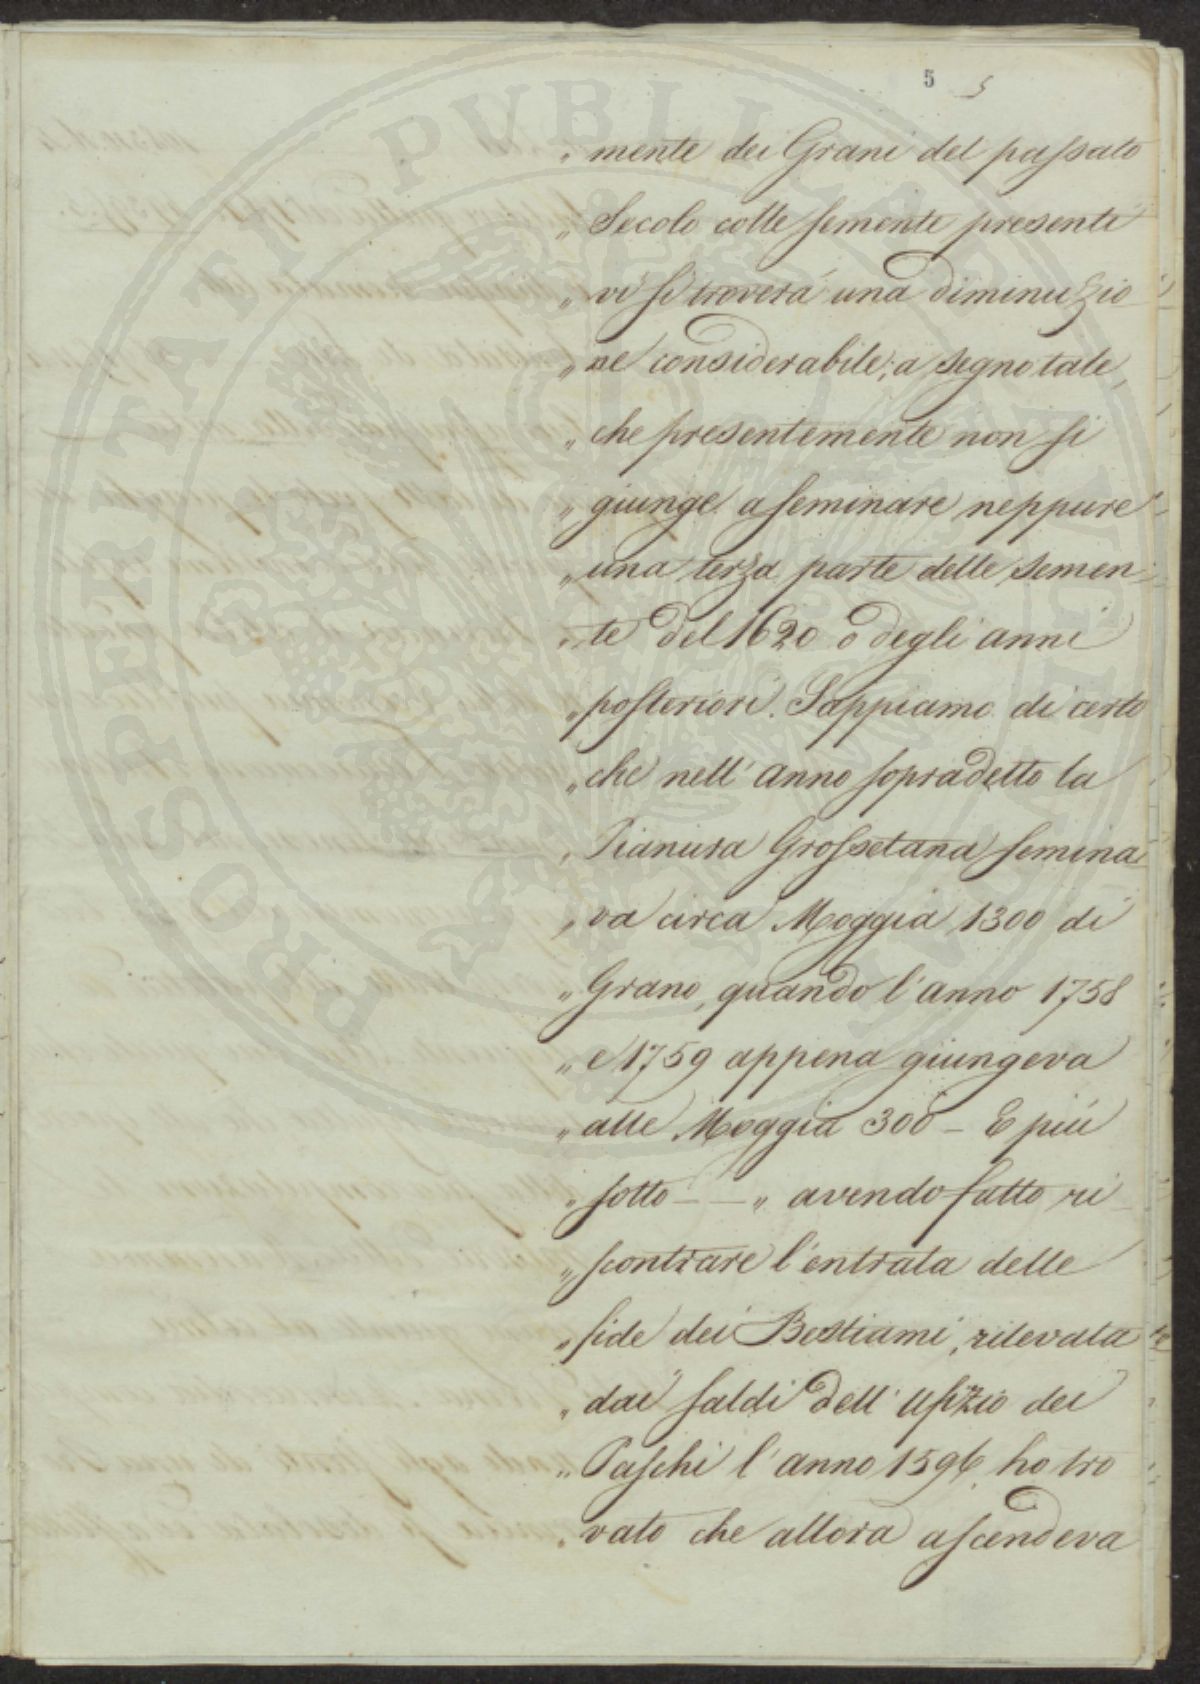 5 5
„ mente dei Grani del passato
„ Secolo colle semente presenti
„ vi si troverà una diminuzio-
„ ne considerabile; a segno tale,
„ che presentemente non si
„ giunge a seminare neppure
„ una terza parte delle semen-
„ te del 1620 o degli anni
„ posteriori. Sappiamo di certo
„ che nell' anno sopradetto la
„ Pianura Grossetana semina-
„ va circa Moggia 1300 di
„ Grano, quando l'anno 1758
„ e 1759 appena giungeva
„ alle Moggia 300 – E più
„ sotto – – „ avendo fatto ri-
„ scontrare l'entrata delle
„ fide dei Bestiami, rilevata
„ dai saldi dell' Ufizio dei
„ Paschi l'anno 1596, ho tro
„ vato che allora ascendeva
PROSPERITATI PUBLICAE